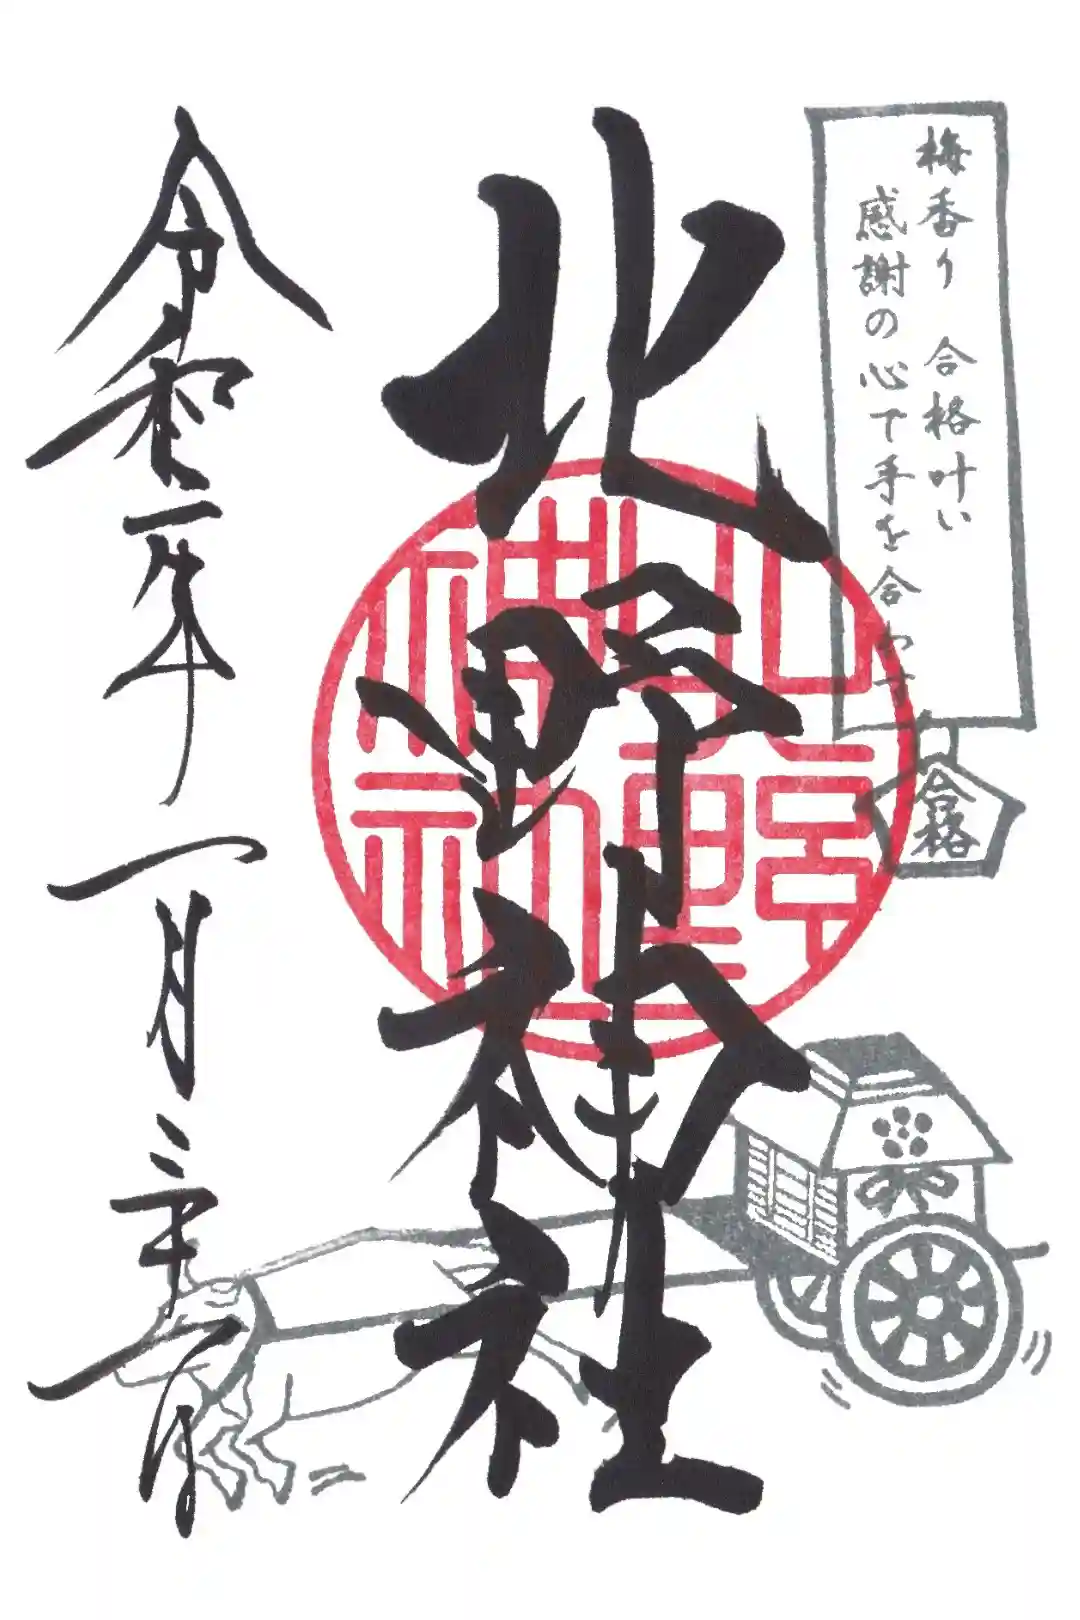 梅香り 合格叶い
感謝の心で手を合わす
合格
北野神社
令和二年一月三十一日